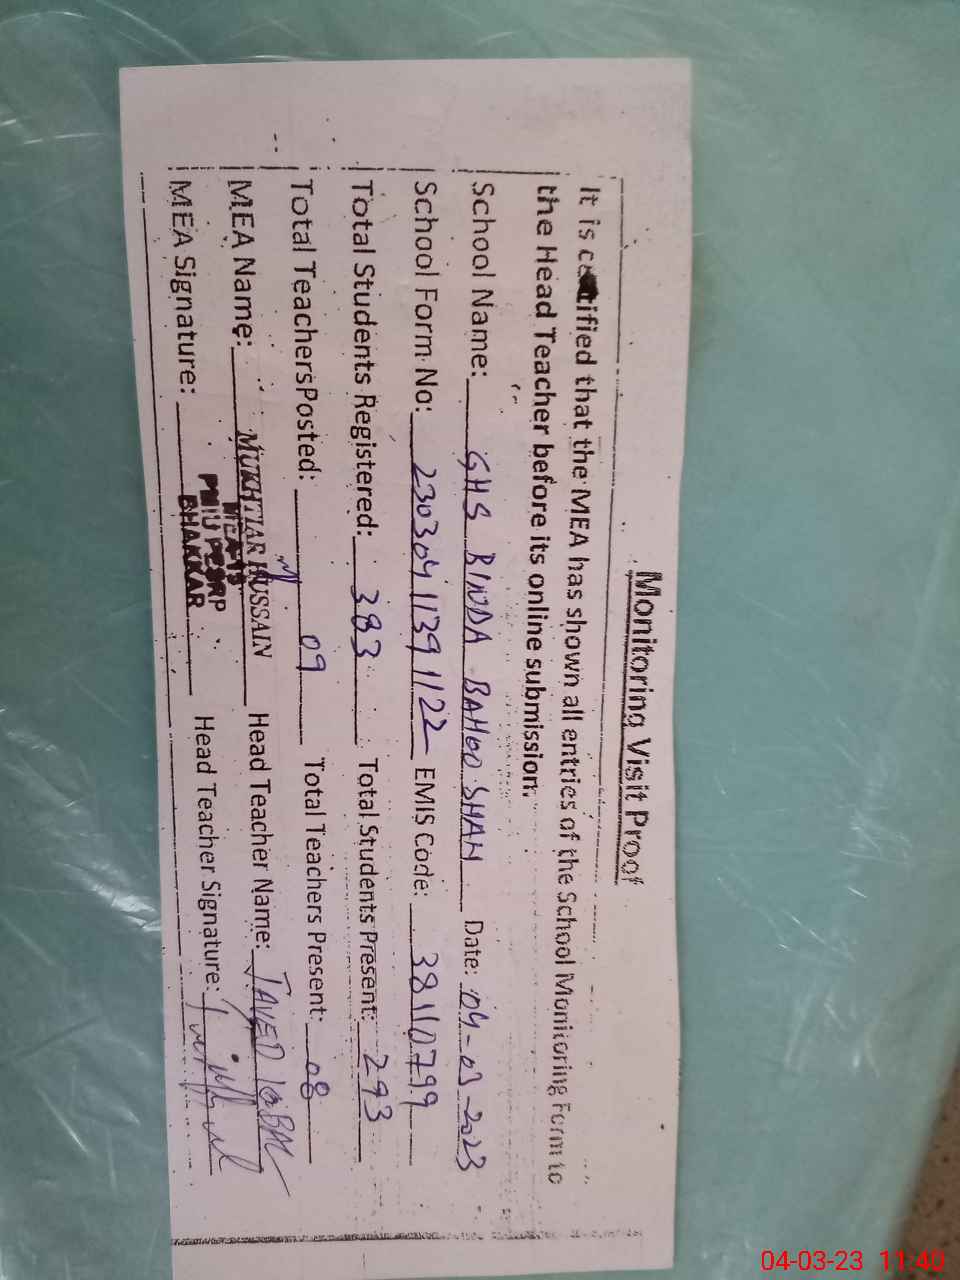 Monitoring Visit Proof
It is certified that the MEA has shown all entries of the School Monitoring Form to
the Head Teacher before its online submission.
School Name: GHS BINDA BAHOO SHAH Date: 04-03-2023
School Form No: 23030411391122 EMIS Code: 38110799
Total Students Registered: 383 Total Students Present: 293
Total TeachersPosted: 09 Total Teachers Present: 08
MEA Name: MUKHTIAR HUSSAIN Head Teacher Name: JAVED IQBAL
MEA Signature: Head Teacher Signature:
PMIU PESRP
BHAKKAR
04-03-23 11:40